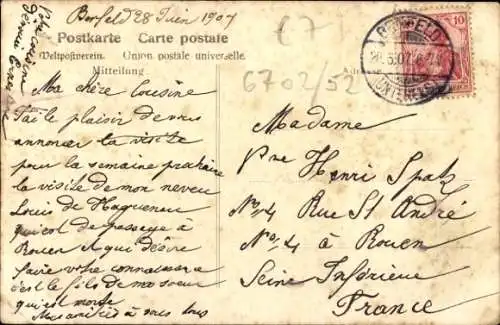 Berfeld 28 Juin 1907
Postkarte Carte postale
Weltpostverein. Union postale universelle.
Mitteilung
Ma chère Cousine
J'ai le plaisir de vous
annoncer la visite
pour la semaine prochaine
la visite de mon neveu
Louis de Haguenau
qui est de passage à
Rouen & qui désire
faire votre connaissance
c'est le fils de ma soeur
qui est morte
Mes amitiés à vous tous
votre cousine
67
6702/52
10
Madame
Vve Henri Spatz
No 4 Rue St André
No 4 à Rouen
Seine Inférieure
France